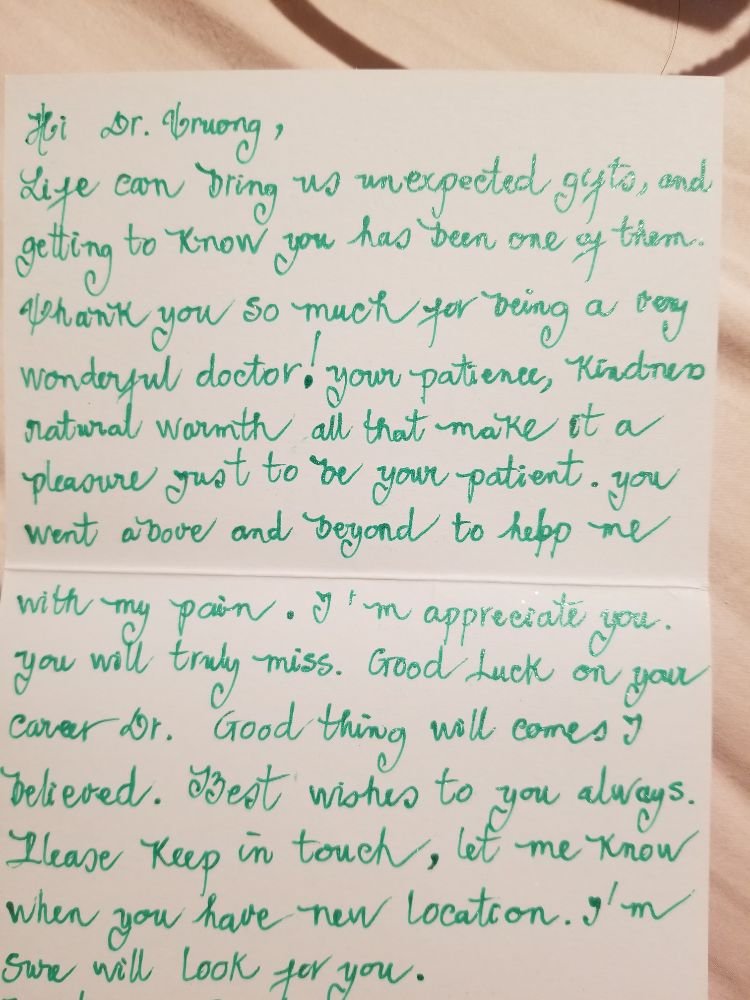 Hi Dr. Truong,
Life can bring us unexpected gifts, and
getting to know you has been one of them.
Thank you so much for being a very
wonderful doctor! your patience, kindness
natural warmth all that make it a
pleasure just to be your patient. you
went above and beyond to help me
with my pain. I'm appreciate you.
you will truly miss. Good Luck on your
career Dr. Good thing will comes I
believed. Best wishes to you always.
Please keep in touch, let me know
when you have new location. I'm
sure will look for you.